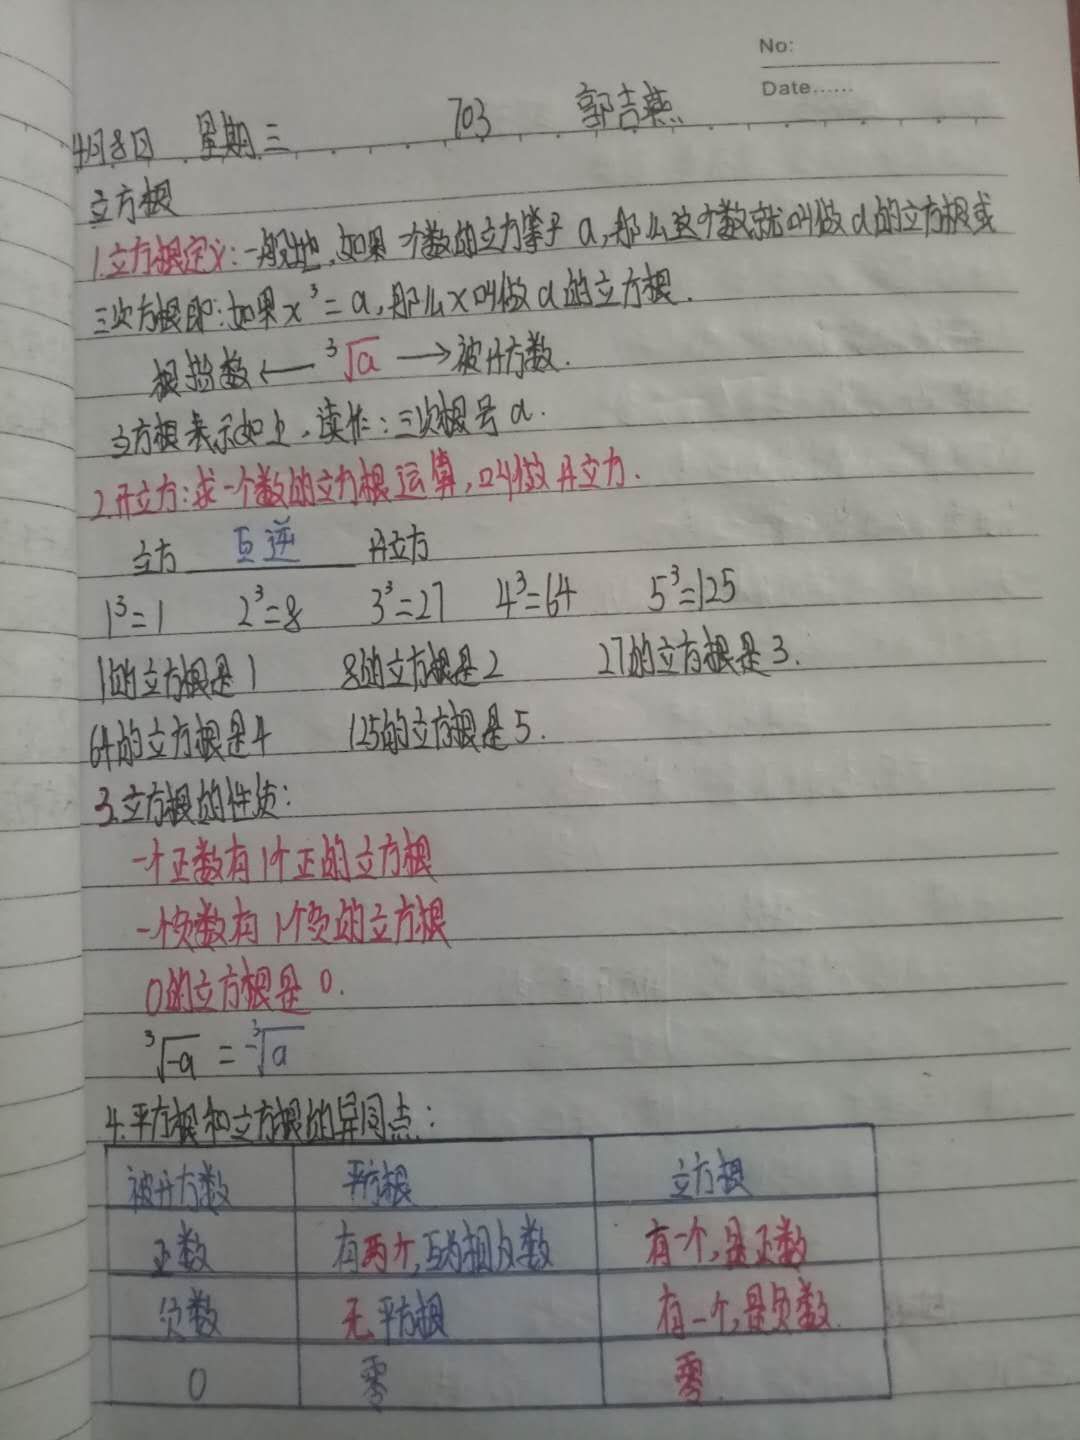 No:
Date......
4月8日 星期三 703 郭吉燕
立方根
1.立方根定义:一般地,如果一个数的立方等于a,那么这个数就叫做a的立方根或
三次方根即:如果x³=a,那么x叫做a的立方根.
根指数←—³√a—→被开方数.
立方根表示如上,读作:三次根号a.
2.开立方:求一个数的立方根运算,叫做开立方.
立方 互逆 开立方
1³=1 2³=8 3³=27 4³=64 5³=125
1的立方根是1 8的立方根是2 27的立方根是3.
64的立方根是4 125的立方根是5.
3.立方根的性质:
一个正数有1个正的立方根
一个负数有1个负的立方根
0的立方根是0.
³√-a=-³√a
4.平方根和立方根的异同点:
被开方数 平方根 立方根
正数 有两个,互为相反数 有一个,是正数
负数 无平方根 有一个,是负数
0 零 零